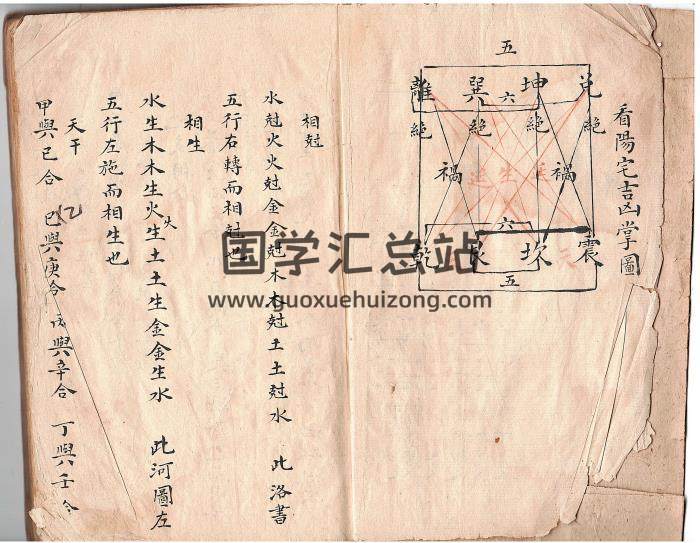 看陽宅吉凶掌圖
五
離 巽 坤 兌
六
絕 絕 絕 絕
禍 禍
生
六
乾 艮 坎 震
五
相尅
水尅火火尅金金尅木木尅土土尅水 此洛書
五行右轉而相尅也
相生
水生木木生火火生土土生金金生水 此河圖左
五行左施而相生也
天干
甲與已合 乙與庚合 丙與辛合 丁與壬合
国学汇总站
www.guoxuehuizong.com